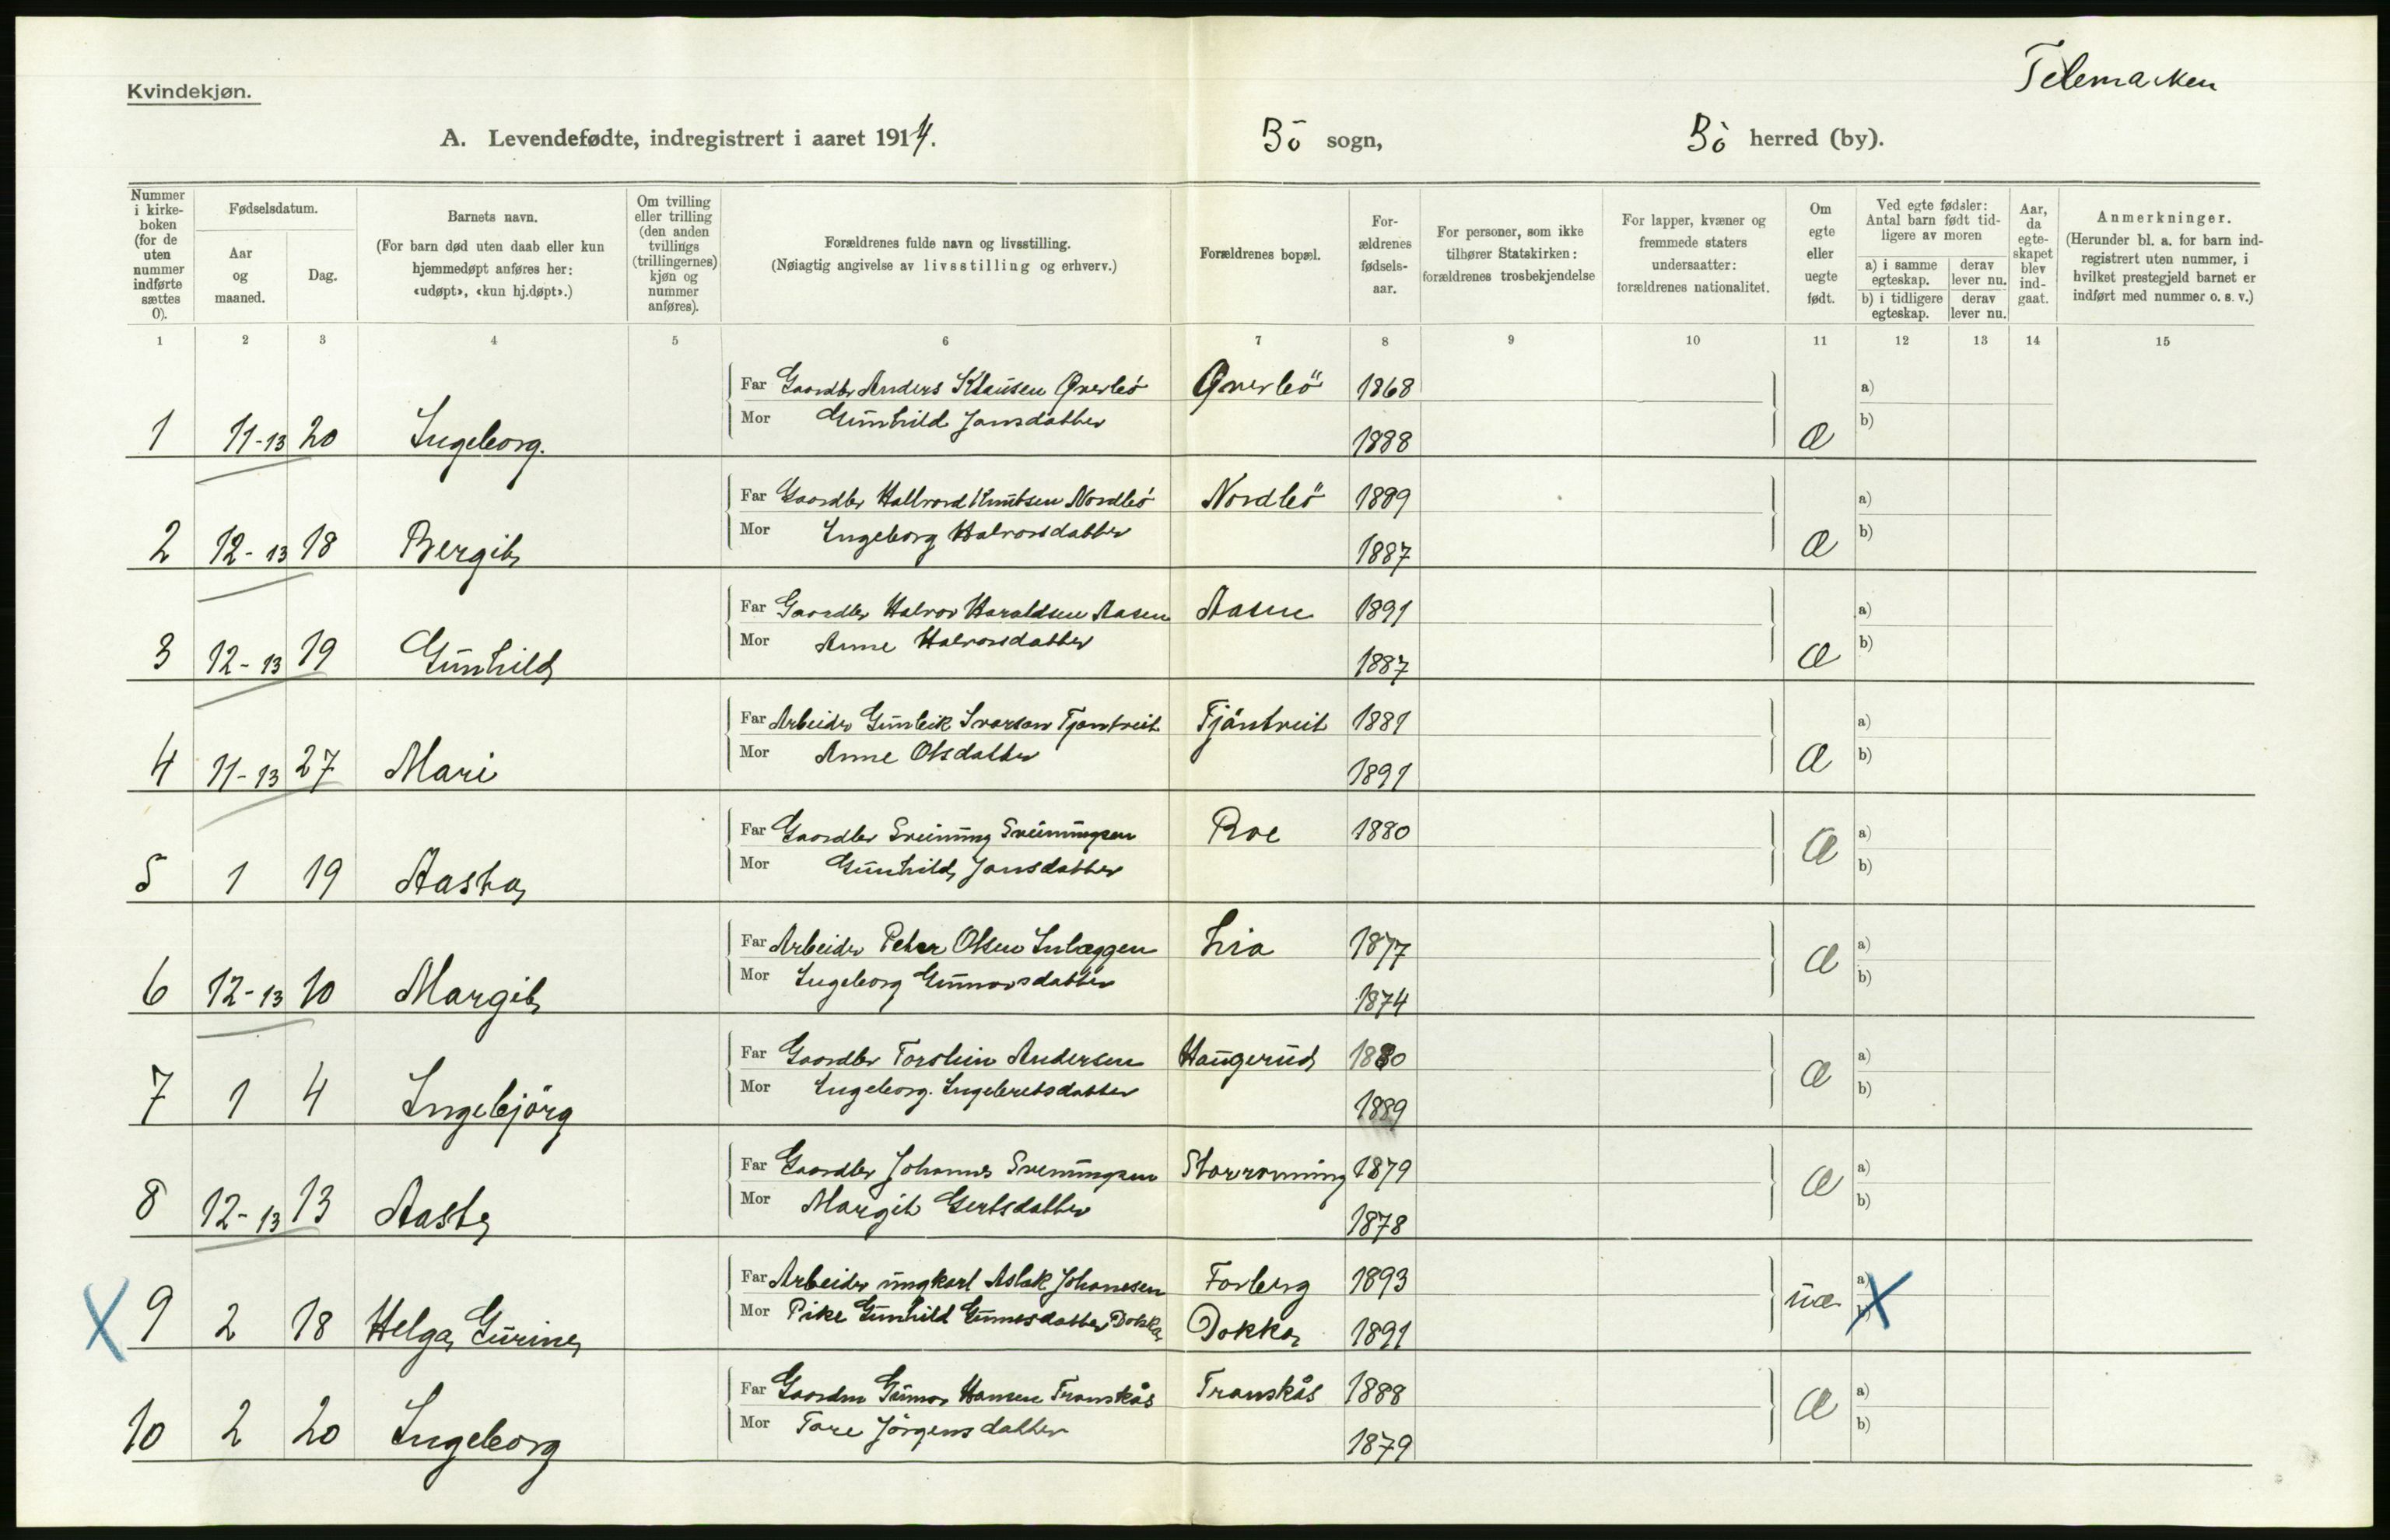 Telemarken
Kvindekjøn.
A. Levendefødte, indregistrert i aaret 1914. Bö sogn, Bö herred (by).
Nummer i kirkeboken (for de uten nummer indførte sættes 0).
Fødselsdatum.
Aar og maaned.
Dag.
Barnets navn.
(For barn død uten daab eller kun hjemmedøpt anføres her: «udøpt», «kun hj.døpt».)
Om tvilling eller trilling (den anden tvillings (trillingernes) kjøn og nummer anføres).
Forældrenes fulde navn og livsstilling.
(Nøiagtig angivelse av livsstilling og erhverv.)
Forældrenes bopæl.
Forældrenes fødselsaar.
For personer, som ikke tilhører Statskirken: forældrenes trosbekjendelse
For lapper, kvæner og fremmede staters undersaatter: forældrenes nationalitet.
Om egte eller uegte født.
Ved egte fødsler: Antal barn født tidligere av moren
a) i samme egteskap. derav lever nu.
b) i tidligere egteskap. derav lever nu.
Aar, da egteskapet blev indgaat.
Anmerkninger.
(Herunder bl. a. for barn indregistrert uten nummer, i hvilket prestegjeld barnet er indført med nummer o. s. v.)
1 2 3 4 5 6 7 8 9 10 11 12 13 14 15
Far Gaardbr Anders Klausen Øverbö Øverbö 1868 a)
1 11-13 20 Ingeborg. Mor Gunhild Jansdatter 1888 Æ b)
Far Gaardbr Hallvord Knutsen Nordbö Nordbö 1889 a)
2 12-13 18 Bergit Mor Ingeborg Halvorsdatter 1887 Æ b)
Far Gaardbr Halvor Haraldsen Aasen Aasen 1891 a)
3 12-13 19 Gunhild Mor Anne Halvorsdatter 1887 Æ b)
Far Arbeider Gunleik Ivarson Tjöntveit Tjöntveit 1881 a)
4 11-13 27 Mari Mor Anne Olsdatter 1891 Æ b)
Far Gaardbr Sveinung Sveinungsen Roe 1880 a)
5 1 19 Aasta Mor Gunhild Jonsdatter Æ b)
Far Arbeider Peter Olsen Inlæggen Lia 1877 a)
6 12-13 10 Margit Mor Ingeborg Gunnorsdatter 1874 Æ b)
Far Gaardbr Torstein Andersen Haugerud 1880 a)
7 1 4 Ingebjörg Mor Ingeborg Ingebretsdatter 1889 Æ b)
Far Gaardbr Johannes Sveinungsen Storrønning 1879 a)
8 12-13 13 Aaste Mor Margit Gertsdatter 1878 Æ b)
Far Arbeider ungkarl Aslak Johanesen Forberg 1893 a)
X 9 2 18 Helga Gurine Mor Pike Gunhild Gunnesdatter Dokka Dokka 1891 uæ b) X
Far Gaardm Gunnar Hansen Transkås Transkås 1888 a)
10 2 20 Ingeborg Mor Tore Jörgensdatter 1879 Æ b)